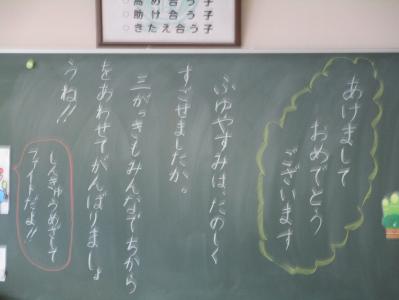 高め合う子
助け合う子
きたえ合う子
あけまして
おめでとう
ございます
ふゆやすみは、たのしく
すごせましたか。
三がっきもみんなでちから
をあわせてがんばりましょ
うね!!
しんきゅうめざして
ファイトだよ!!